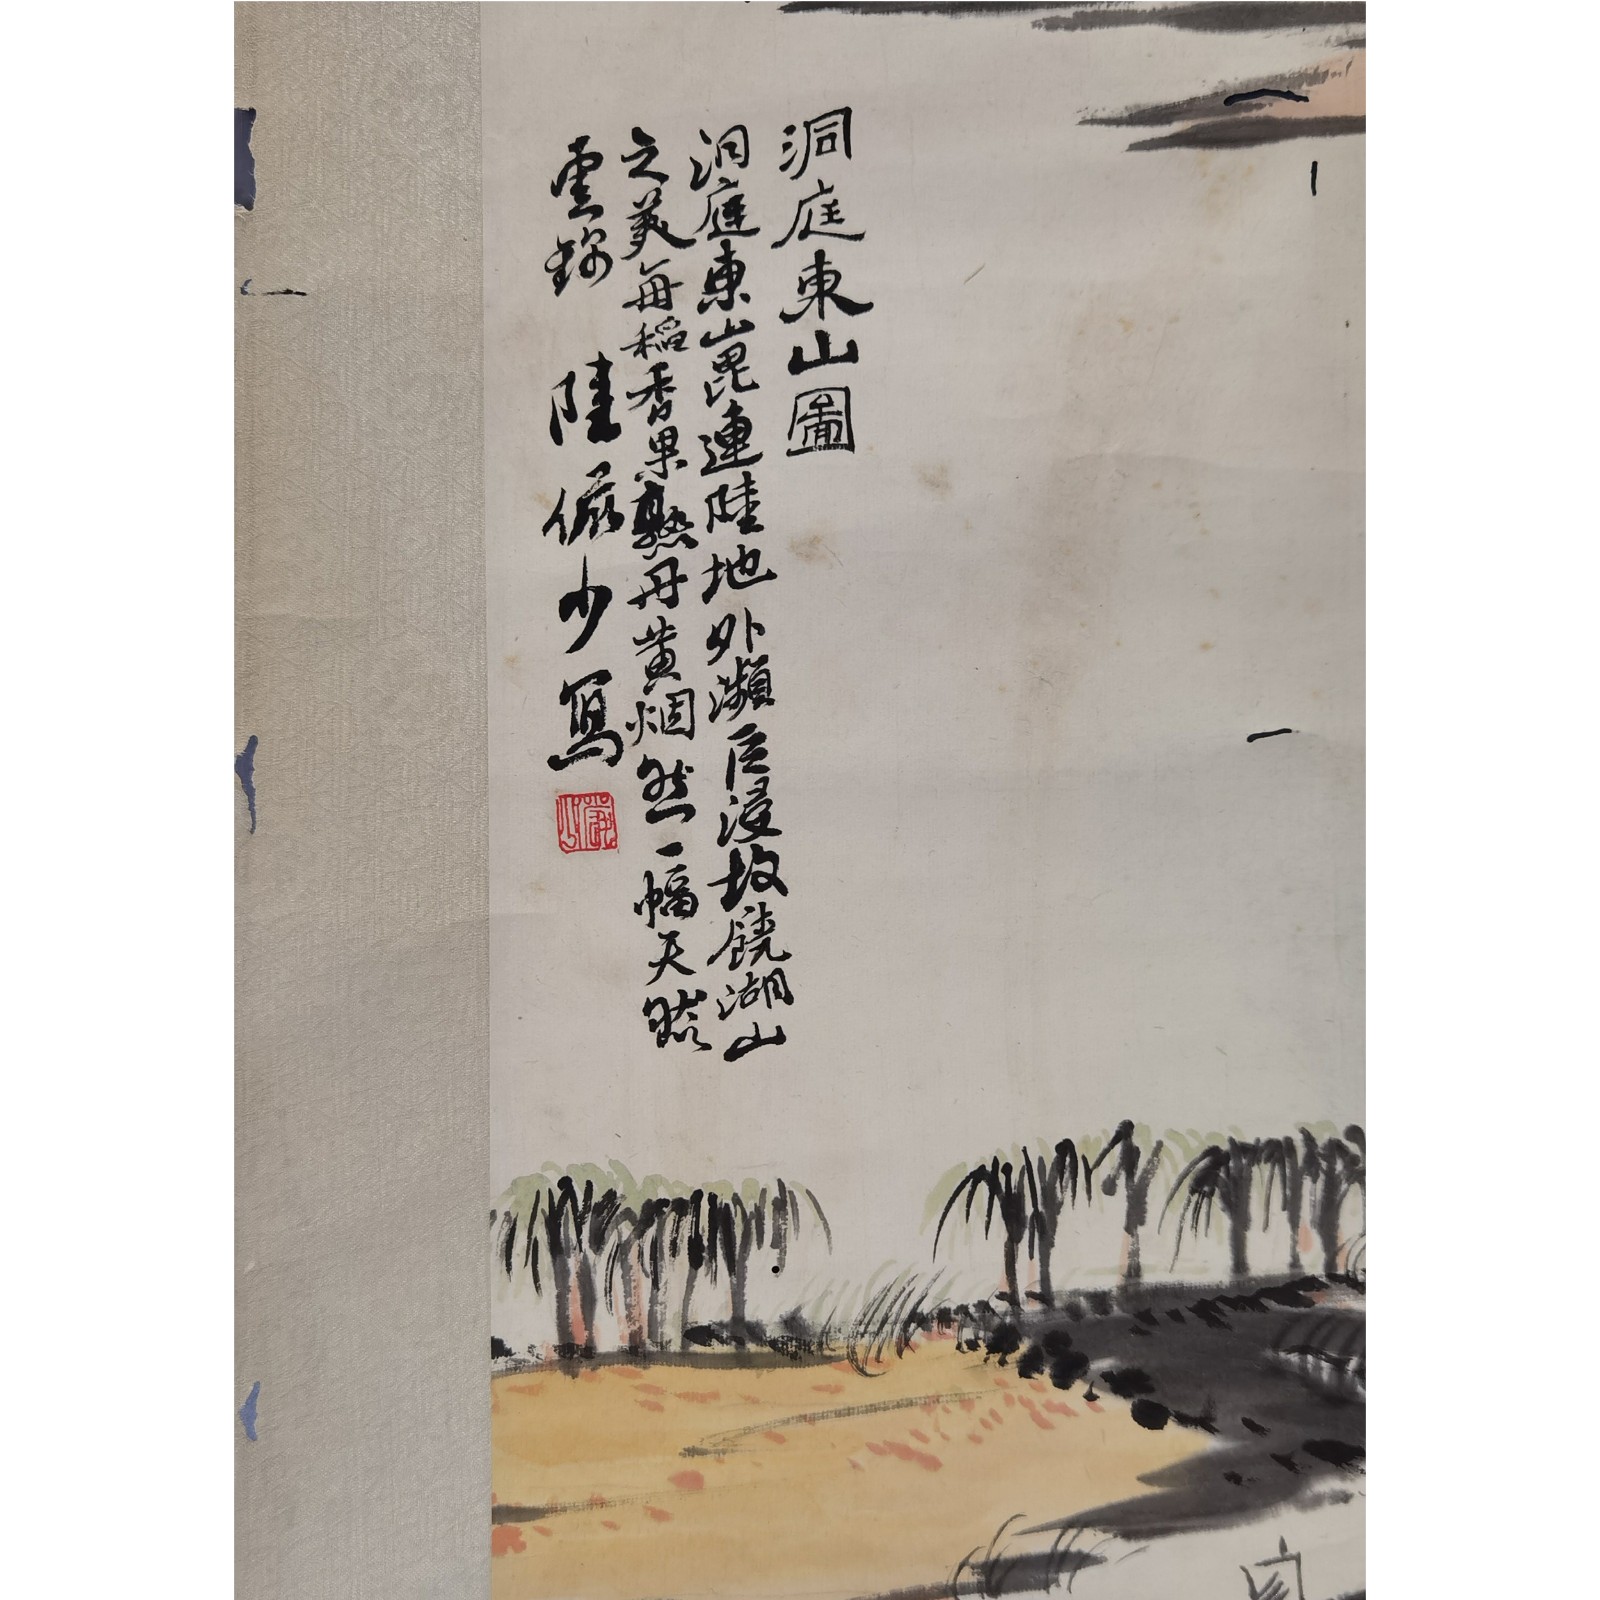 洞庭東山圖
洞庭東山毘連陸地外瀕巨浸故饒湖山
之美每稻香果熟丹黄烟然一幅天然
雲錦 陸儼少寫